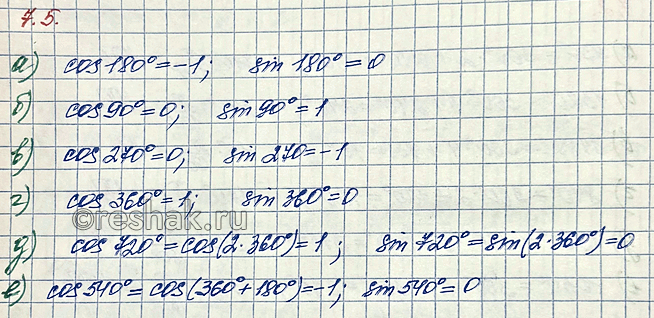 7.5.
а) cos 180° = -1; sin 180° = 0
б) cos 90° = 0; sin 90° = 1
в) cos 270° = 0; sin 270 = -1
г) cos 360° = 1; sin 360° = 0
©reshak.ru
д) cos 720° = cos(2·360°) = 1; sin 720° = sin(2·360°) = 0
е) cos 540° = cos(360° + 180°) = -1; sin 540° = 0